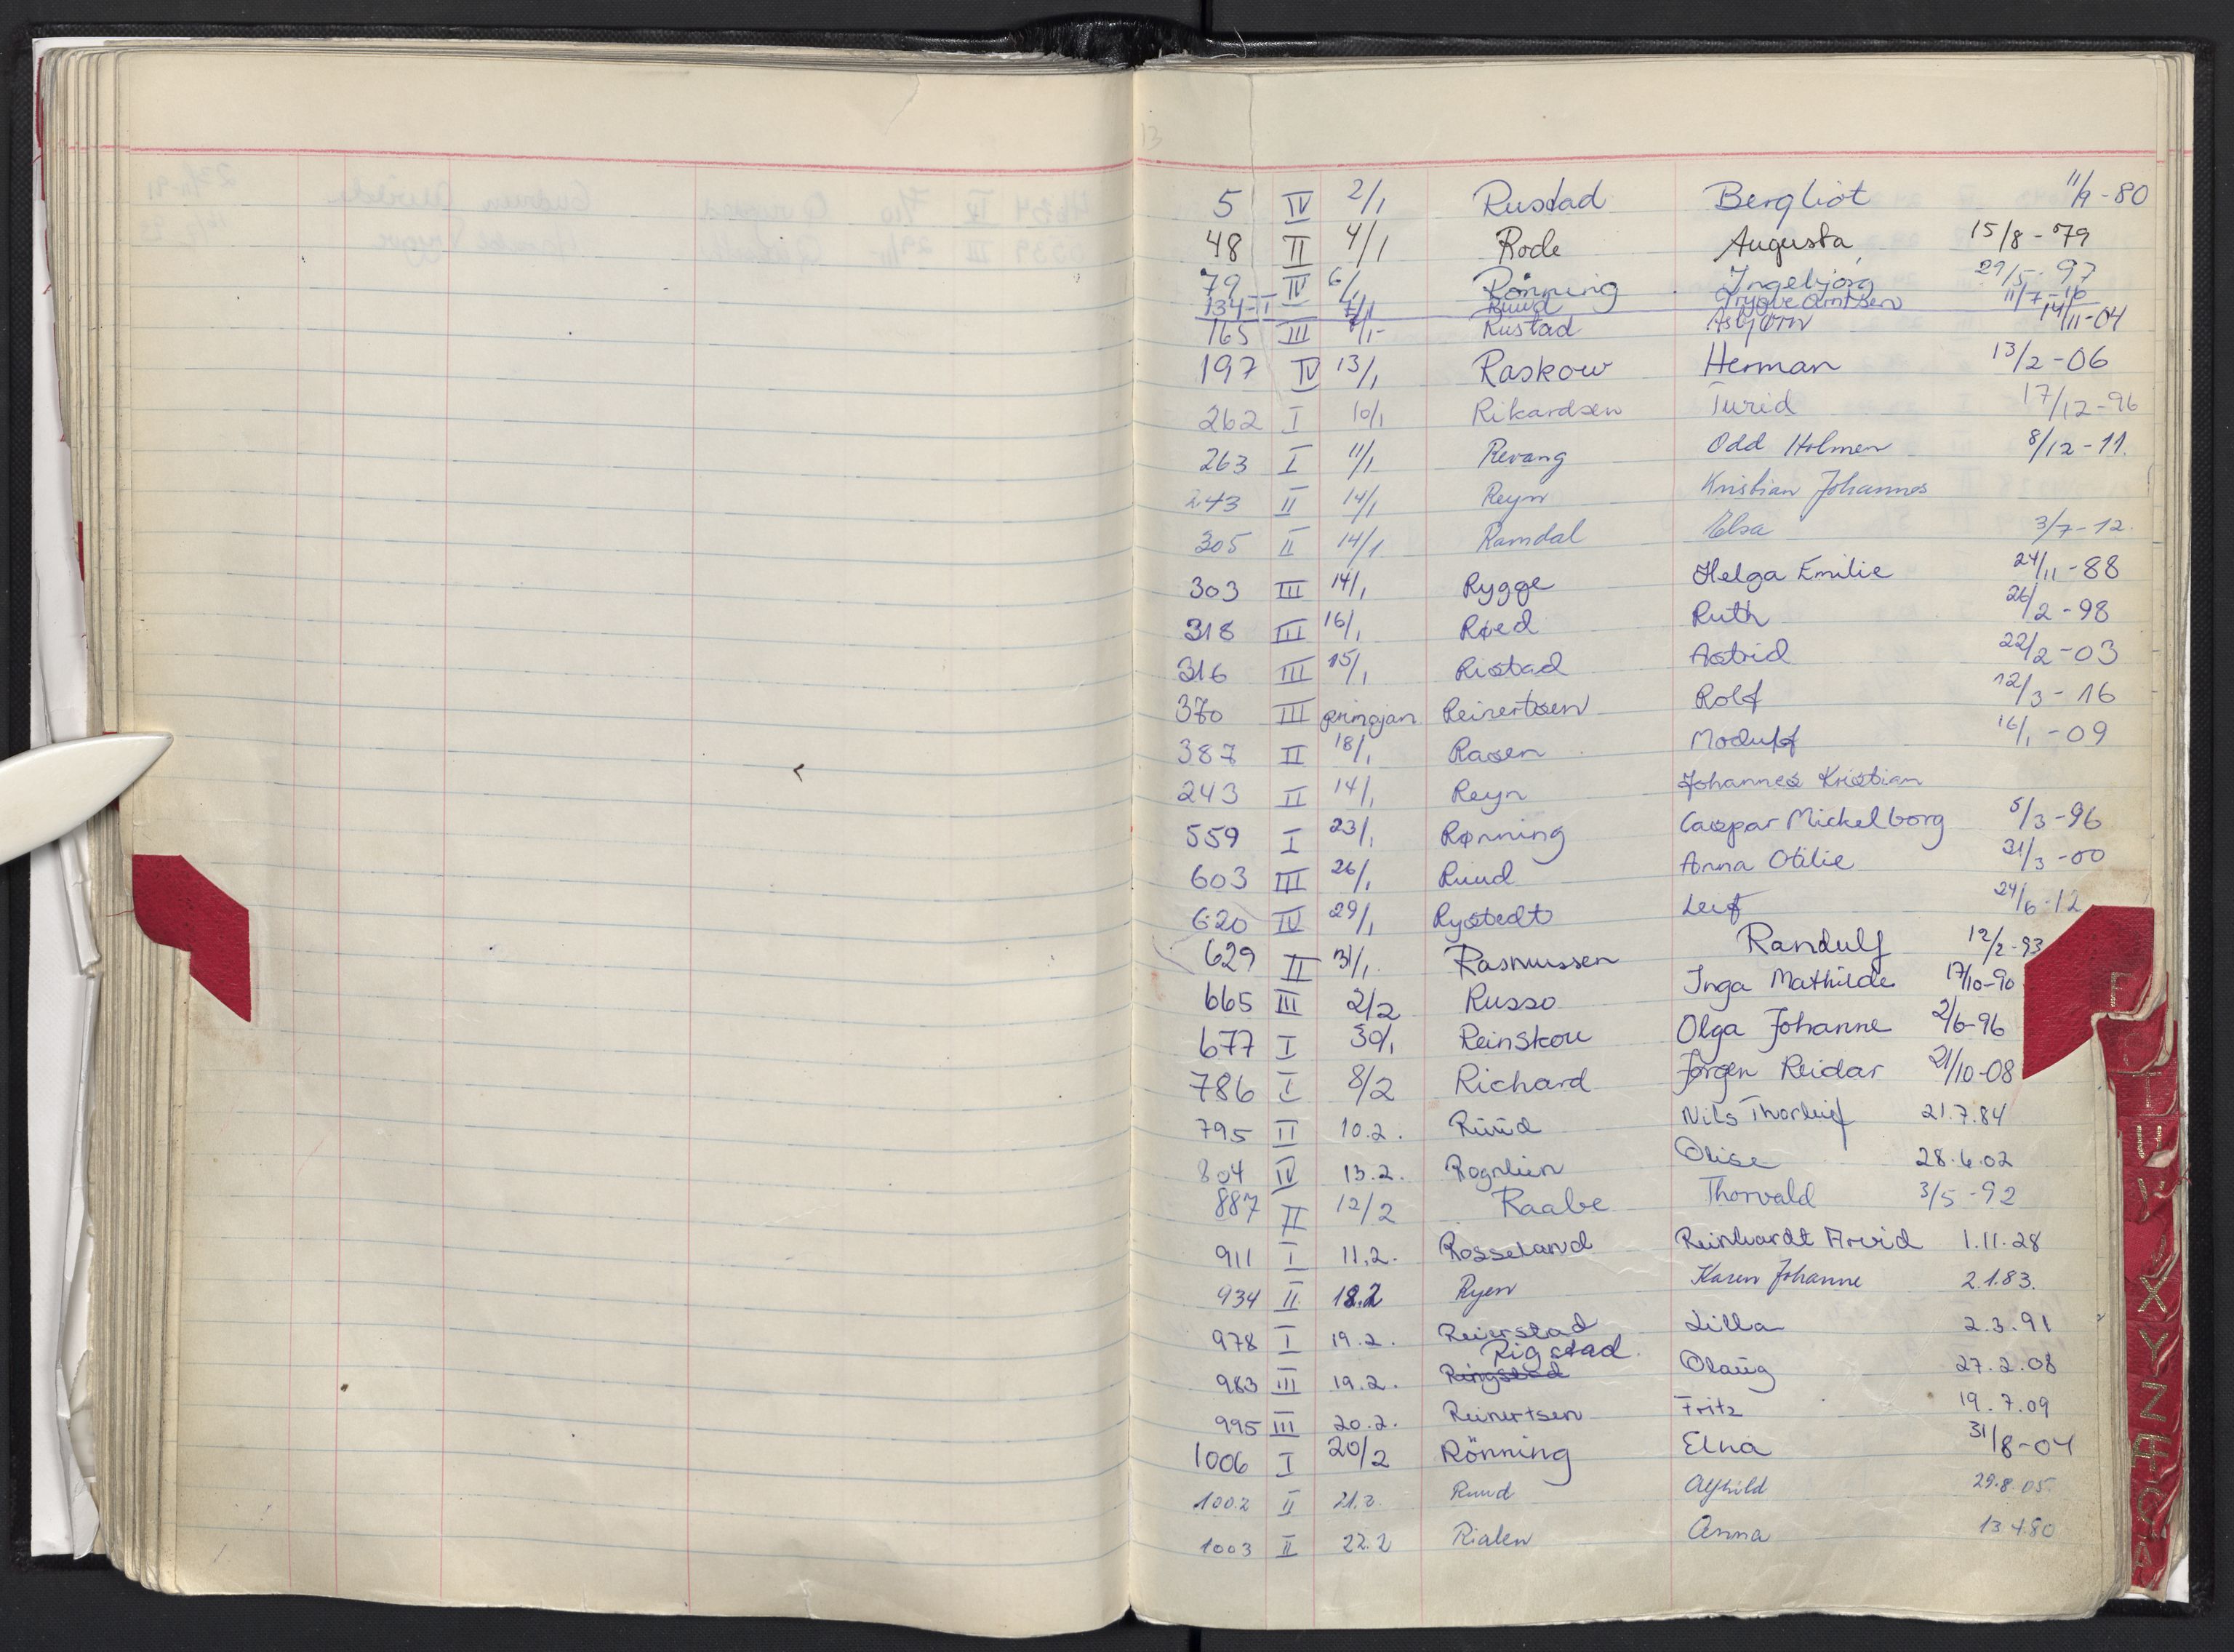 13
5 IV 2/1 Rustad Bergliot 11/9-80
48 II 4/1 Rode Augusta 15/8-79
79 IV 6/1 Rönning Ingebjörg 29/5-97
134 II 7/1 Ruud Trygve Arntsen 11/7-10
165 III 7/1- Rustad Asbjørn 14/11-04
197 IV 13/1 Raskow Herman 13/2-06
262 I 10/1 Rikardsen Turid 17/12-96
263 I 11/1 Revang Odd Holmen 8/12-11.
243 II 14/1 Reyn Kristian Johannes
305 II 14/1 Ramdal Elsa 3/7-12.
303 III 14/1 Rygge Helga Emilie 24/11-88
318 III 16/1 Røed Ruth 26/2-98
316 III 15/1 Ristad Astrid 22/2-03
370 III jan Reinertsen Rolf 12/3-16
387 II 18/1 Rasen Modulf 16/1-09
243 II 14/1 Reyn Johannes Kristian
559 I 23/1 Rønning Caspar Mickelborg 5/3-96
603 III 26/1 Ruud Anna Otilie 21/3-00
620 IV 29/1 Rystedt Leif 24/6-12
629 II 31/1. Rasmussen Randulf 12/2-93
665 III 2/2 Russo Inga Mathilde 17/10-90
677 I 30/1 Reinskou Olga Johanne 2/6-96
786 I 8/2 Richard Jørgen Reidar 21/10-08
795 II 10.2. Ruud Nils Thorleif 21.7.84
804 IV 13.2. Rognlien Olise 28.6.02
887 II 12/2 Raabe Thorvald 3/5-92
911 I 11.2. Rosseland Reinhardt Arvid 1.11.28
934 II 18.2 Ryen Karen Johanne 2.1.83.
978 I 19.2. Reierstad Lilla 2.3.91
Rigstad.
983 III 19.2. Ringstad Olaug 27.2.08
995 III 20.2. Reinertsen Fritz 19.7.09
1006 I 20/2 Rönning Elna 31/8-04
1002 II 21.2. Ruud Alfhild 29.8.05
1003 II 22.2 Rialen Anna 13.4.80